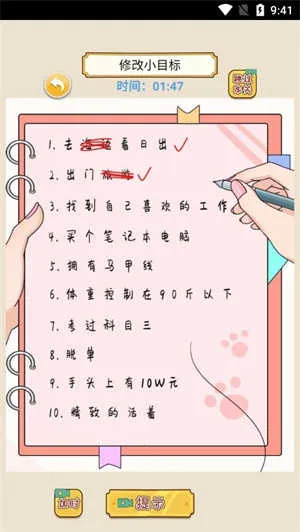 9:41
修改小目标
时间：01:47
1. 去 看日出
2. 出门
3. 找到自己喜欢的工作
4. 买个笔记本电脑
5. 拥有马甲线
6. 体重控制在90斤以下
7. 考过科目三
8. 脱单
9. 手头上有10W元
10. 精致的活着
提示